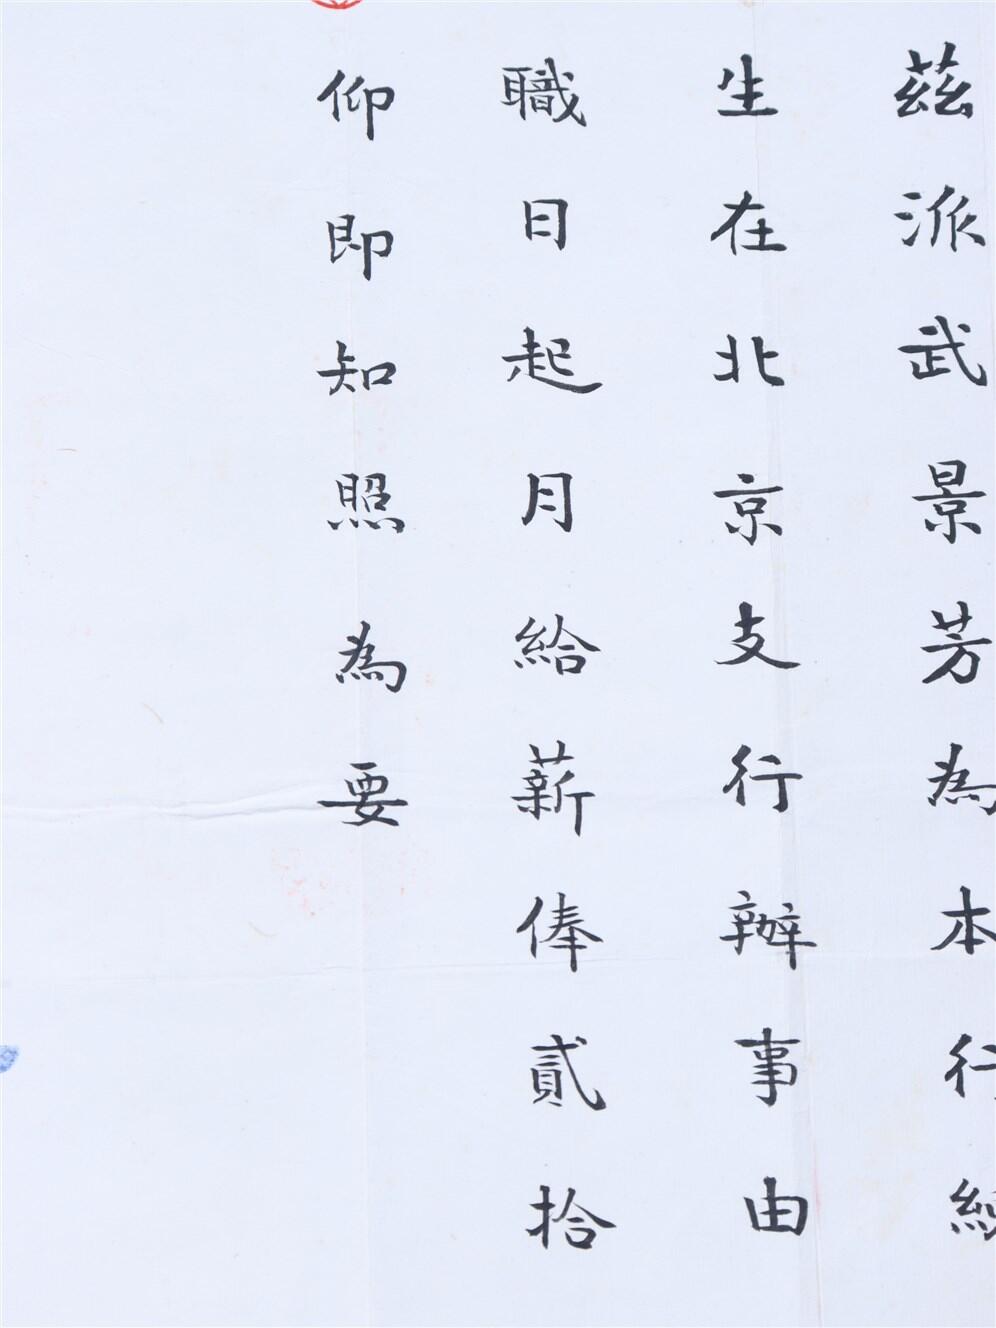 茲派武景芳為本行練
生在北京支行辦事由
職日起月給薪俸貳拾
仰即知照為要